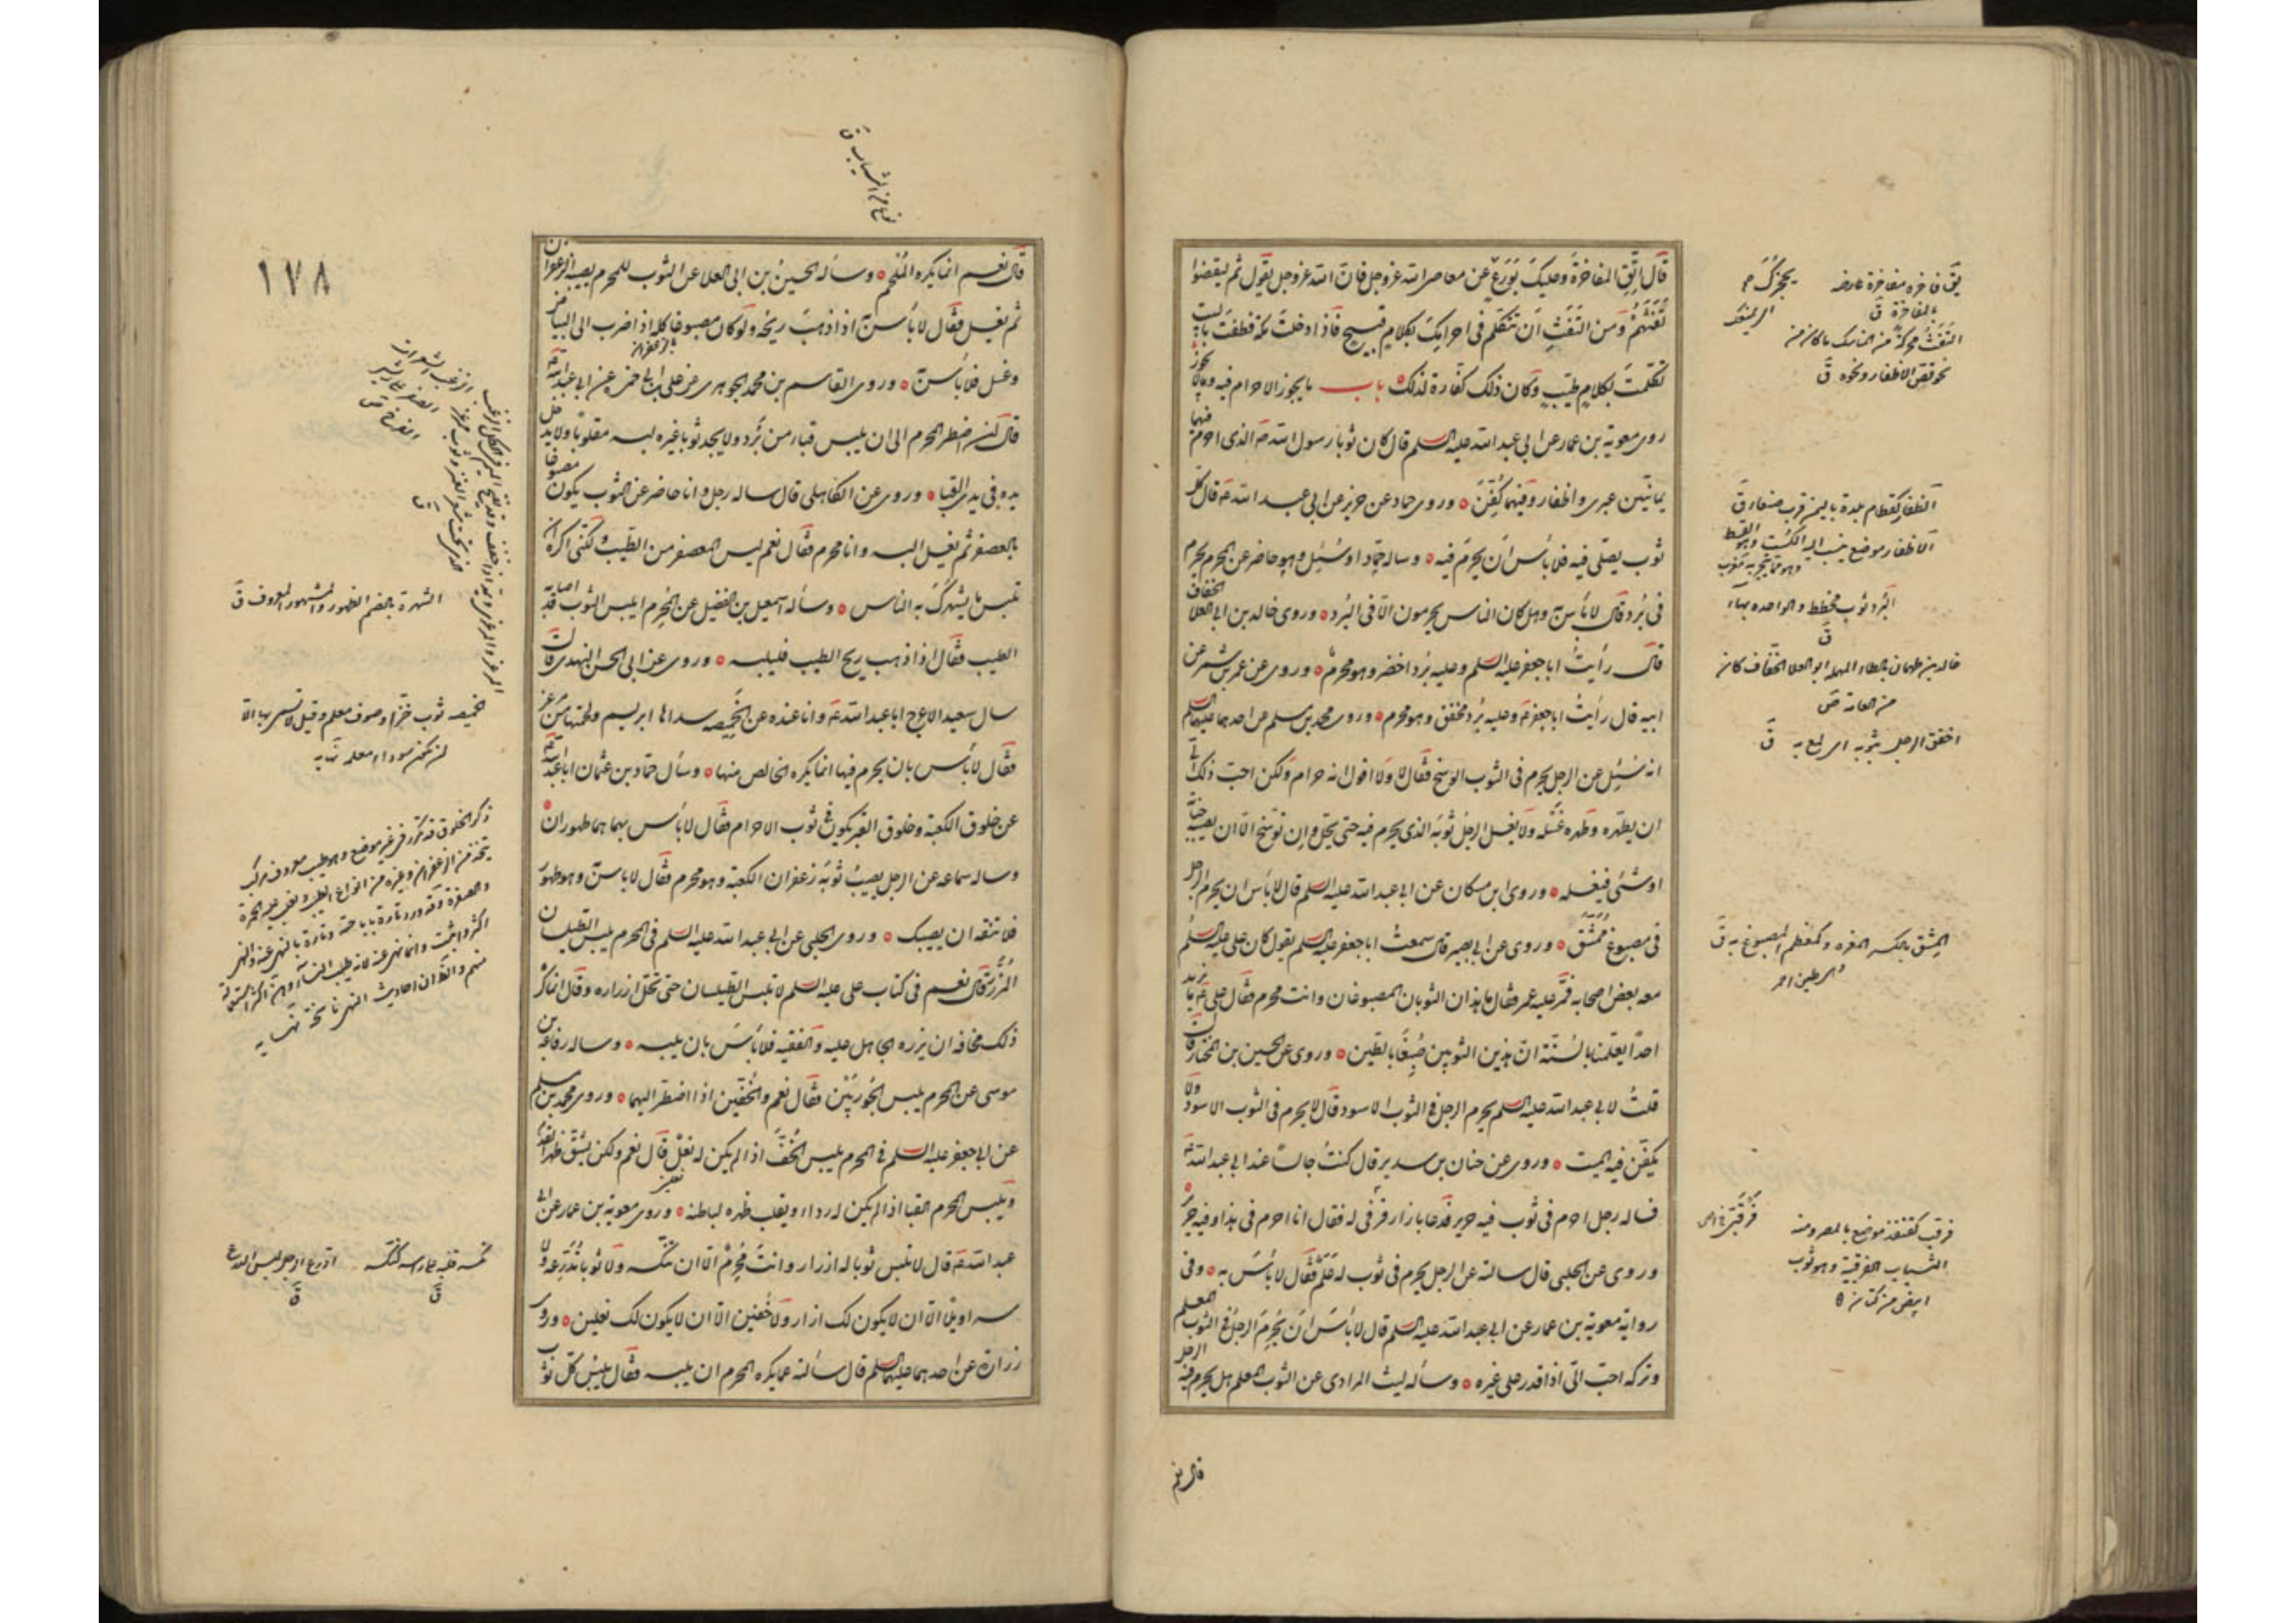 قال اتّق المفاخرة وعليك بورع عن معاصي الله عز وجل فان الله عز وجل يقول ثم ليقضوا
تفثهم ومن التفث ان تتكلم في احرامك بكلام قبيح فاذا دخلت مكة فطفت بالبيت
تكلمت بكلام طيب وكان ذلك كفارة لذلك باب ما يجوز الاحرام فيه وما لا يجوز
روى معوية بن عمار عن ابي عبد الله عليه السلم قال كان ثوبا رسول الله ص الذي احرم فيهما
يمانيين عبري واظفار وفيهما كفن وروى حماد عن حريز عن ابي عبد الله ع قال كل
ثوب يصلى فيه فلا بأس ان يحرم فيه وساله حماد او سئل وهو حاضر عن المحرم يحرم
في برد قال لا بأس به وهل كان الناس يحرمون الا في البرد وروى خالد بن ابي العلا الخفاف
قال رأيت ابا جعفر عليه السلم وعليه برد اخضر وهو محرم وروى عن عمرو بن شمر عن
ابيه قال رأيت ابا جعفر ع وعليه برد مخفق وهو محرم وروى محمد بن مسلم عن احدهما عليهما السلم
انه سئل عن الرجل يحرم في الثوب الوسخ فقال لا ولا اقول انه حرام ولكن احب ذلك الي
ان يطهره وطهره غسله ولا يغسل الرجل ثوبه الذي يحرم فيه حتى يحل وان توسخ الا ان يصيبه جنابة
او شئ فيغسله وروى ابن مسكان عن ابي عبد الله عليه السلم قال لا بأس ان يحرم الرجل
في مصبوغ ممشق وروى عن ابي بصير قال سمعت ابا جعفر عليه السلم يقول كان علي عليه السلم
معه بعض اصحابه فمر عليه عمر فقال ما هذان الثوبان المصبوغان وانت محرم فقال علي ع ما نريد
احدا يعلمنا بالسنة ان هذين الثوبين صبغا بالطين وروى عن الحسين بن المختار قال
قلت لابي عبد الله عليه السلم يحرم الرجل في الثوب الاسود قال لا يحرم في الثوب الاسود ولا
يكفن فيه الميت وروى عن حنان بن سدير قال كنت جالسا عند ابي عبد الله ع
فساله رجل احرم في ثوب فيه حرير فدعا بازار قرقبي له فقال انا احرم في هذا وفيه حرير
وروى عن الحلبي قال سالته عن الرجل يحرم في ثوب له علم فقال لا بأس به وفي
رواية معوية بن عمار عن ابي عبد الله عليه السلم قال لا بأس ان يحرم الرجل في الثوب المعلم
وتركه احب الي اذا قدر على غيره وسأله ليث المرادي عن الثوب المعلم هل يحرم فيه الرجل
قال نعم
التفث محركة في المناسك ما كان من
نحو قص الاظفار ونحوه ق
الظفار كقطام بلدة باليمن قرب صنعاء ق
البرد ثوب مخطط والواحدة بهاء
ق
خالد بن طهمان بالطاء المهملة ابو العلا الخفاف كان
من العامة ص
اخفق الرجل بثوبه اي لمع به ق
المشق بالكسر المغرة وكمعظم المصبوغ به ق
فرقب كقنفذ موضع بالمصر ومنه
الثياب الفرقبية وهو ثوب
ابيض من كتان
١٧٨
قال نعم انما يكره الملحم وسأله الحسين بن ابي العلا عن الثوب للمحرم يصيبه الزعفران
ثم يغسل فقال لا بأس به اذا ذهب ريحه ولو كان مصبوغا كله اذا ضرب الى البياض
وغسل فلا بأس به وروى القاسم بن محمد الجوهري عن علي بن ابي حمزة عن ابي عبد الله ع
قال ان اضطر المحرم الى ان يلبس قباء من برد ولا يجد ثوبا غيره لبسه مقلوبا ولا يدخل
يده في يدي القبا وروى عن الكاهلي قال ساله رجل وانا حاضر عن الثوب يكون مصبوغا
بالعصفر ثم يغسل البسه وانا محرم فقال نعم ليس العصفر من الطيب ولكني اكره ان
تلبس ما يشهرك به الناس وسأله اسمعيل بن الفضل عن المحرم ايلبس الثوب قد اصابه
الطيب فقال اذا ذهب ريح الطيب فليلبسه وروى عن ابي الحسن النهدي قال
سال سعيد الاعرج ابا عبد الله ع وانا عنده عن الخميصة سداها ابريسم ولحمتها من غزل
فقال لا بأس بان يحرم فيها انما يكره الخالص منها وسأل حماد بن عثمان ابا عبد الله ع
عن خلوق الكعبة وخلوق القبر يكون في ثوب الاحرام فقال لا بأس بهما هما طهوران
وساله سماعة عن الرجل يصيب ثوبه زعفران الكعبة وهو محرم فقال لا بأس به وهو طهور
فلا تتقه ان يصيبك وروى الحلبي عن ابي عبد الله عليه السلم في المحرم يلبس الطيلسان
المزرر قال نعم في كتاب علي عليه السلم لا تلبس الطيلسان حتى تحل ازراره وقال انما كره
ذلك مخافة ان يزره الجاهل عليه والفقيه فلا بأس بان يلبسه وساله رفاعة بن
موسى عن المحرم يلبس الجوربين فقال نعم والخفين اذا اضطر اليهما وروى محمد بن مسلم
عن ابي جعفر عليه السلم في المحرم يلبس الخف اذا لم يكن له نعل قال نعم ولكن يشق ظهر القدم
ويلبس المحرم القبا اذا لم يكن له رداء ويقلب ظهره لباطنه وروى معوية بن عمار عن ابي
عبد الله ع قال لا تلبس ثوبا له ازرار وانت محرم الا ان تنكسه ولا ثوبا تدرعه ولا
سراويلا الا ان لا يكون لك ازار ولا خفين الا ان لا يكون لك نعلين وروى
زرارة عن احدهما عليهما السلم قال سألته عما يكره للمحرم ان يلبسه فقال يلبس كل ثوب
الشهرة بالضم الظهور والمشهور المعروف ق
الخميصة ثوب خز او صوف معلم وقيل لا تسمى بها الا
ان تكون سوداء معلمة نهاية
نكسه قلبه على راسه كنكسه
ق
ادرع الرجل لبس الدرع
ق